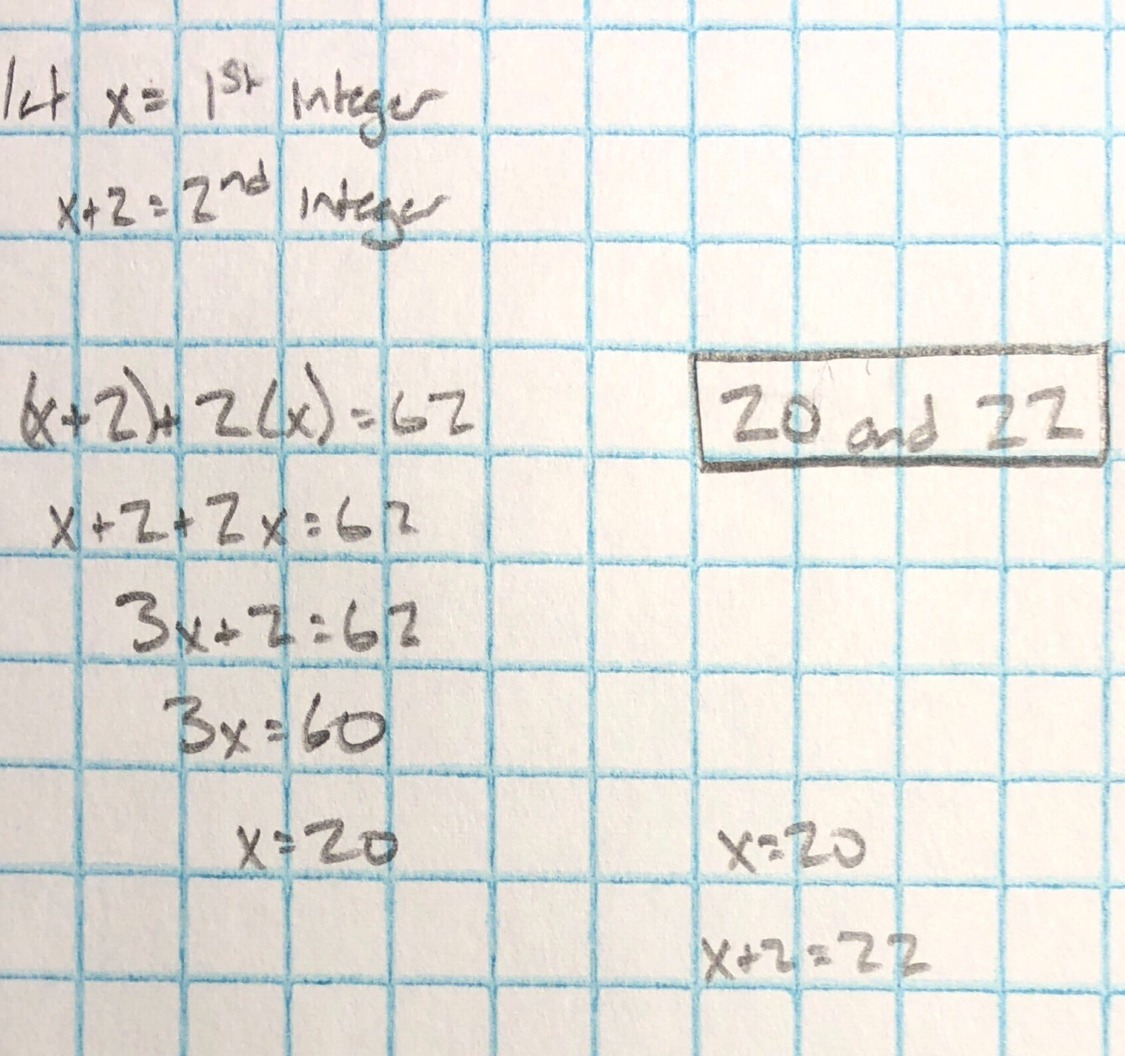 let x = 1st Integer
x+2 = 2nd Integer
(x+2)+ 2(x) = 62
20 and 22
x+2+2x=62
3x+2=62
3x=60
x=20
x=20
x+2=22